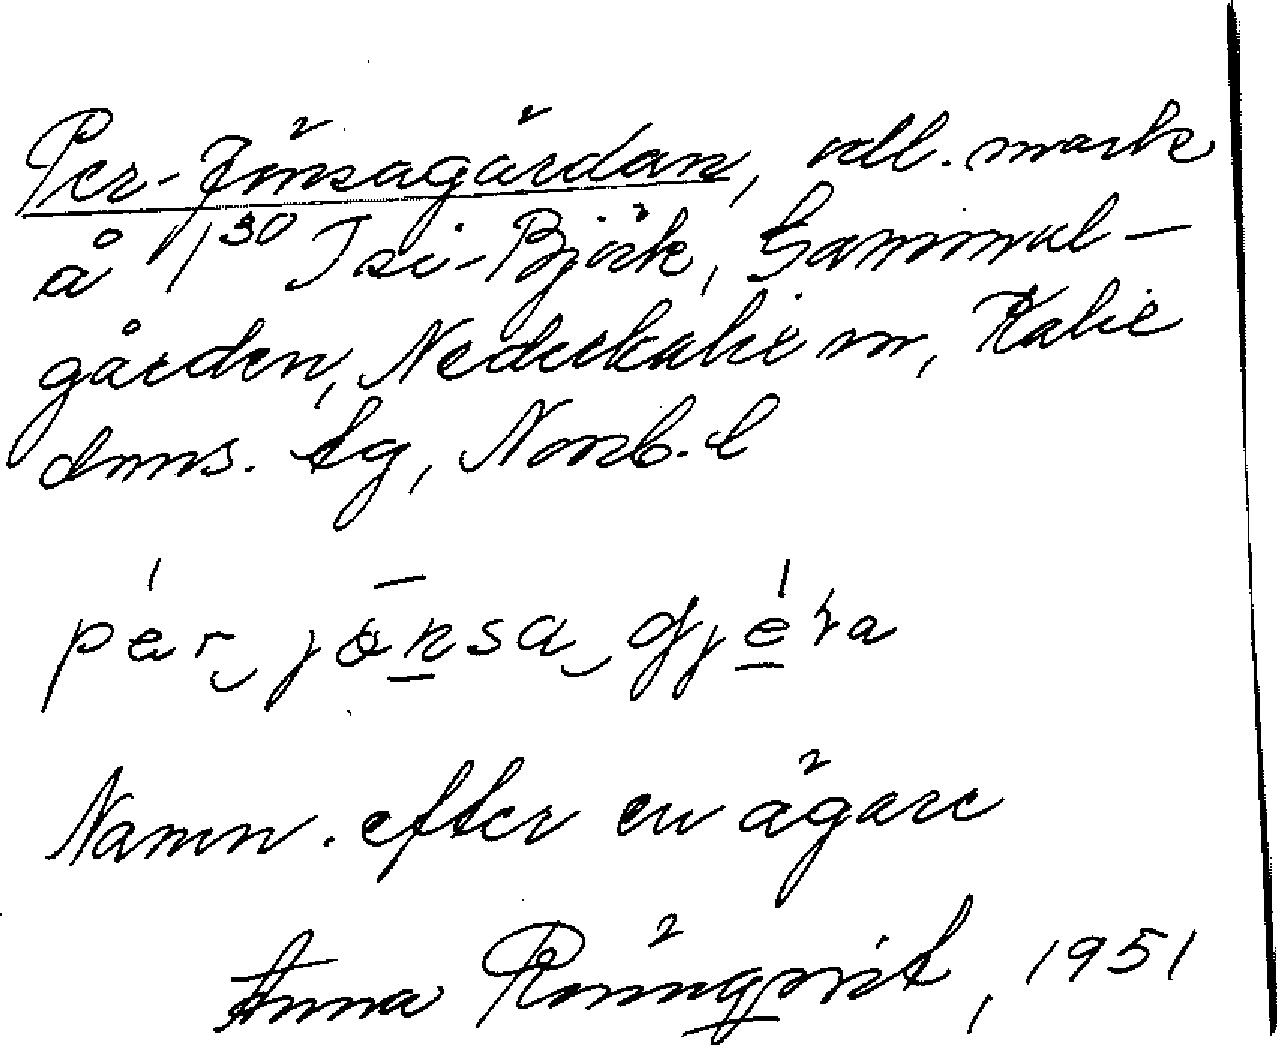 Per-Jönsagärdan, odl. mark
å 1/30 Isi-Björk, Gammel-
gården, Nederkalix sn, Kalix
dms. tg, Norrb. l
pér jön̠sa gjé̠ra
Namn. efter en ägare
Anna Rönnqvist, 1951